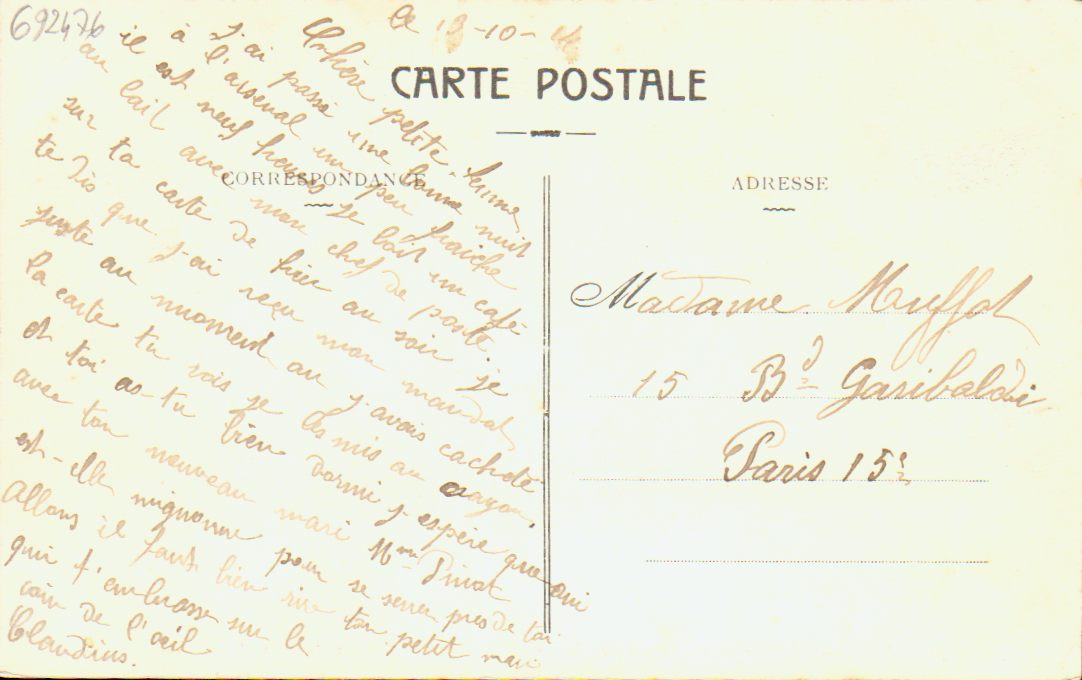 692476
Le 18-10-14
CARTE POSTALE
CORRESPONDANCE
ADRESSE
Chère petite femme
j'ai passé une bonne nuit
à l'arsenal un peu fraiche
il est neuf heures je bois un café
au lait avec mon chef de poste.
sur ta carte de hier au soir je
te dis que j'ai reçu mon mandat
juste au moment ou j'avais cacheté
la carte tu vois je l'ai mis au crayon,
et toi as-tu bien dormi j'espère que oui
avec ton nouveau mari Mme Pinot
est-elle mignonne pour se serrer près de toi
Allons il faut bien rire ton petit mari
qui t'embrasse sur le
coin de l'œil
Claudius.
Madame Muffot
15 Bd Garibaldi
Paris 15e